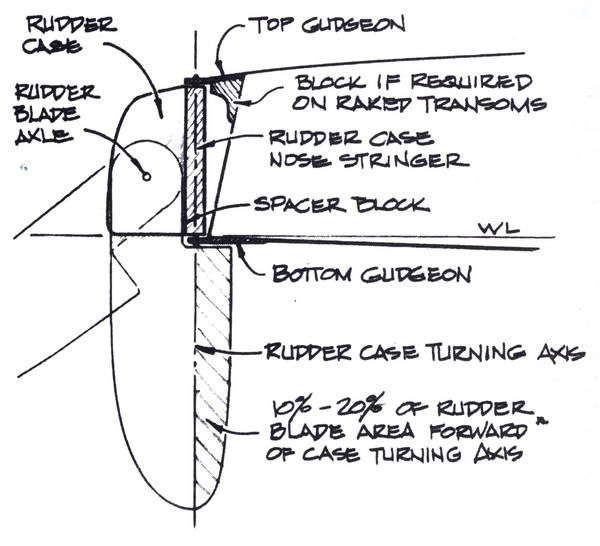 RUDDER
CASE
TOP GUDGEON
RUDDER
BLADE
AXLE
BLOCK IF REQUIRED
ON RAKED TRANSOMS
RUDDER CASE
NOSE STRINGER
SPACER BLOCK
WL
BOTTOM GUDGEON
RUDDER CASE TURNING AXIS
10% - 20% OF RUDDER
BLADE AREA FORWARD
OF CASE TURNING AXIS